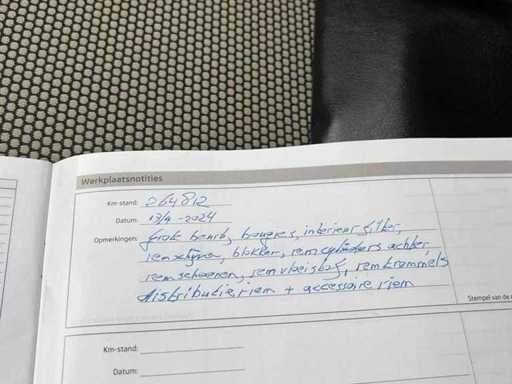 Werkplaatsnotities
Km-stand: 264812
Datum: 13/4-2024
Opmerkingen: grote beurt, bougies, interieur filter,
remschijven, blokken, remcylinders achter
remschoenen, remvloeistof, remtrommels
distributieriem + accessoire riem
Stempel van de
Km-stand:
Datum: